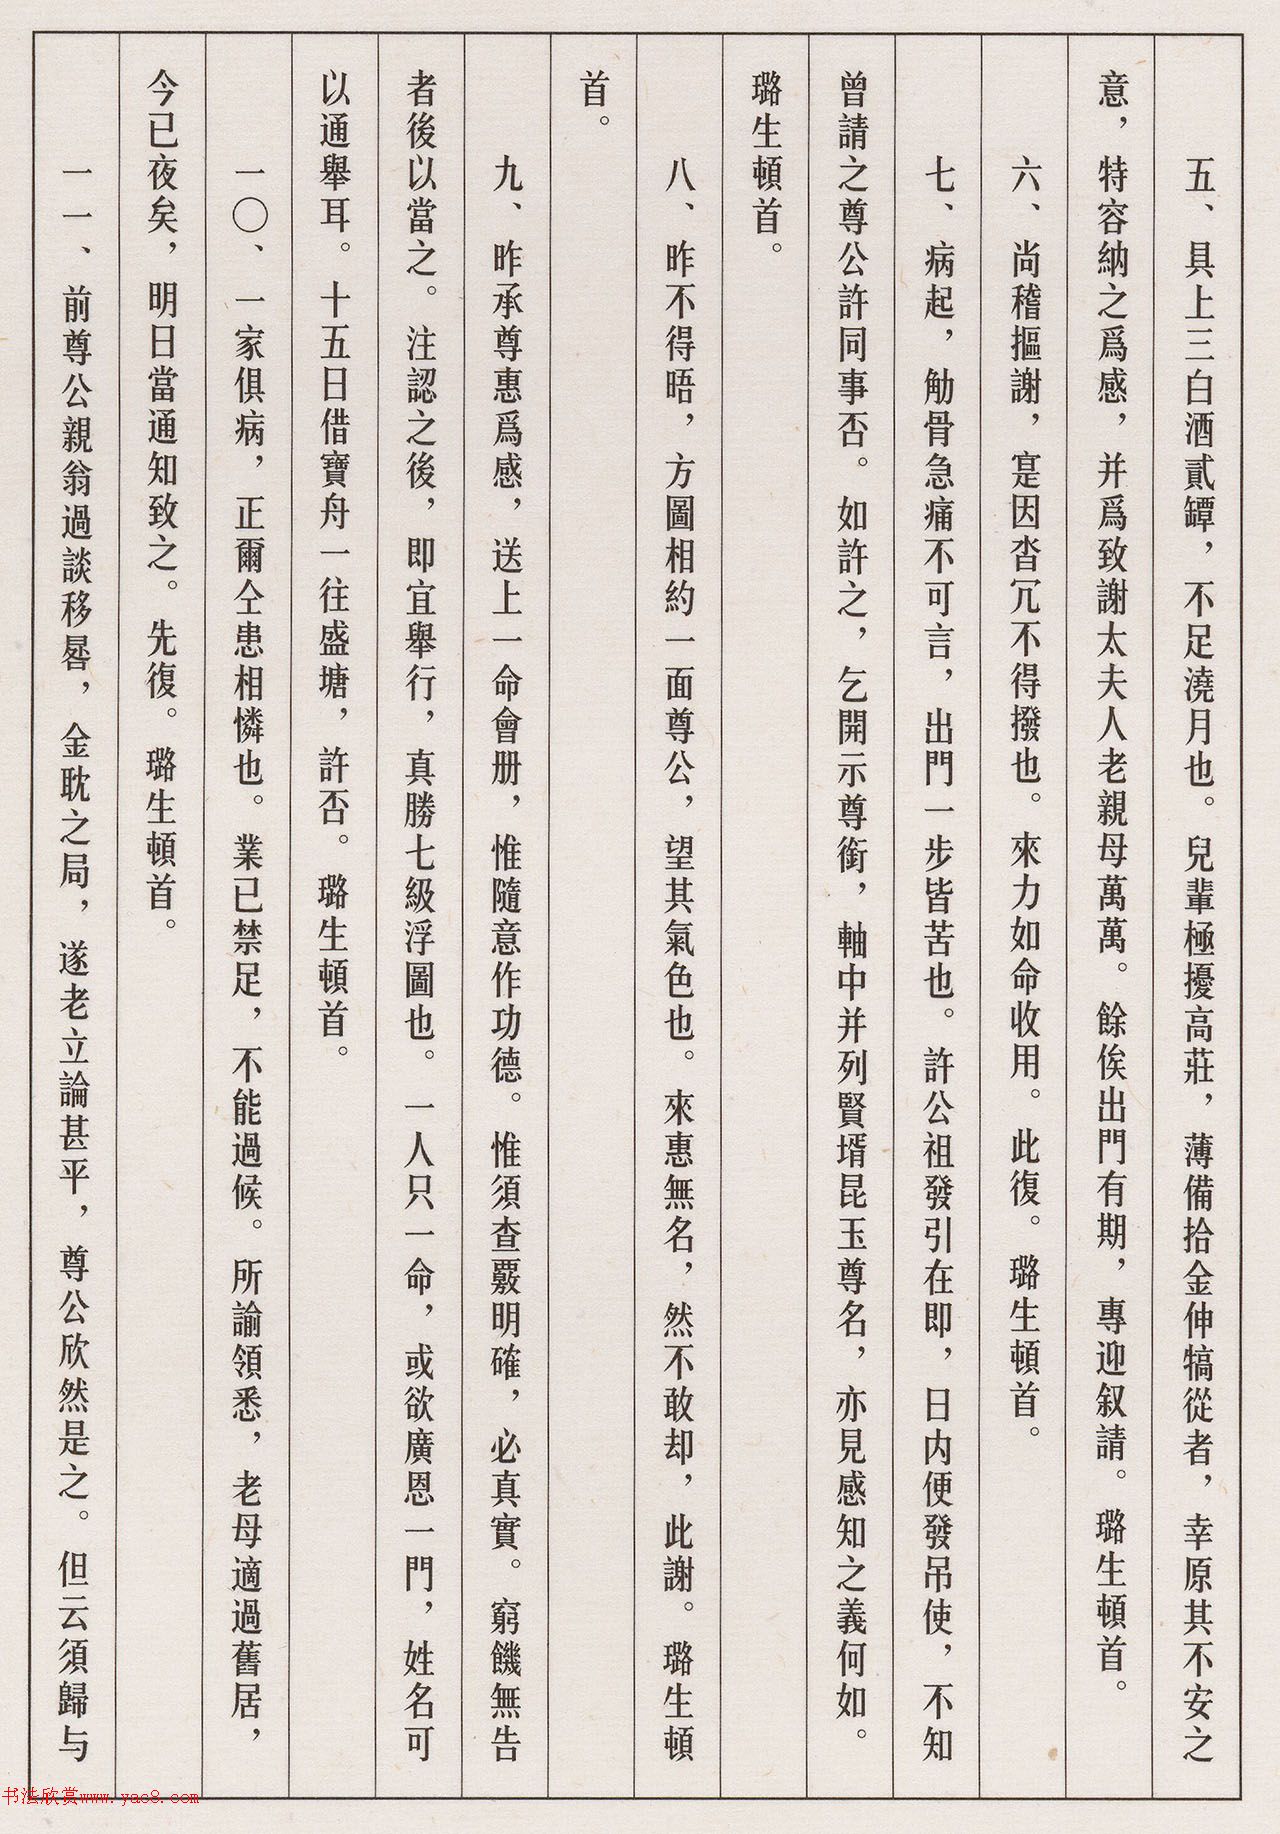 五、具上三白酒貳罈，不足澆月也。兒輩極擾高莊，薄備拾金伸犒從者，幸原其不安之
意，特容納之爲感，并爲致謝太夫人老親母萬萬。餘俟出門有期，專迎叙請。璐生頓首。
六、尚稽摳謝，寔因沓冗不得撥也。來力如命收用。此復。璐生頓首。
七、病起，觔骨急痛不可言，出門一步皆苦也。許公祖發引在即，日内便發吊使，不知
曾請之尊公許同事否。如許之，乞開示尊銜，軸中并列賢壻昆玉尊名，亦見感知之義何如。
璐生頓首。
八、昨不得晤，方圖相約一面尊公，望其氣色也。來惠無名，然不敢却，此謝。璐生頓
首。
九、昨承尊惠爲感，送上一命會册，惟隨意作功德。惟須查覈明確，必真實。窮饑無告
者後以當之。注認之後，即宜舉行，真勝七級浮圖也。一人只一命，或欲廣恩一門，姓名可
以通舉耳。十五日借寶舟一往盛塘，許否。璐生頓首。
一〇、一家俱病，正爾仝患相憐也。業已禁足，不能過候。所諭領悉，老母適過舊居，
今已夜矣，明日當通知致之。先復。璐生頓首。
一一、前尊公親翁過談移晷，金耽之局，遂老立論甚平，尊公欣然是之。但云須歸与
书法欣赏www.yac8.com